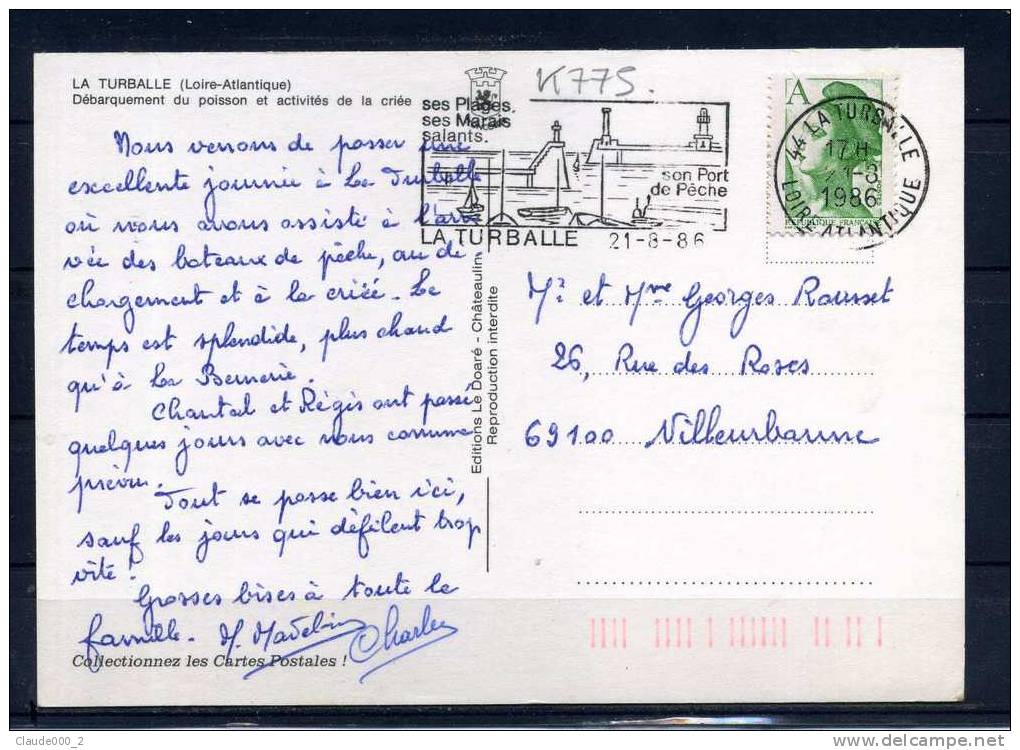 LA TURBALLE (Loire-Atlantique)
Débarquement du poisson et activités de la criée
Nous venons de passer une
excellente journée à La Turballe
où nous avons assisté à l'arri
vée des bateaux de pêche, au dé
chargement et à la criée. Le
temps est splendide, plus chaud
qu'à La Bernerie.
Chantal et Régis ont passé
quelques jours avec nous comme
prévu.
Tout se passe bien ici,
sauf les jours qui défilent trop
vite!
Grosses bises à toute la
famille. M. Madeleine Charles
Collectionnez les Cartes Postales !
Editions Le Doaré - Châteaulin
Reproduction interdite
K775.
ses Plages.
ses Marais
salants.
son Port
de Pêche
LA TURBALLE 21-8-86
A
REPUBLIQUE FRANÇAISE
44 LA TURBALLE
17H
21-8
1986
LOIRE-ATLANTIQUE
Mr et Mme Georges Rousset
26, Rue des Roses
69100 Villeurbanne
Claude000_2
www.delcampe.net